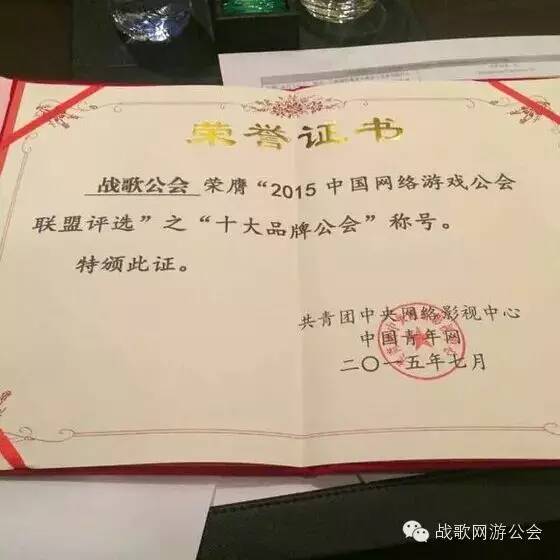 荣誉证书
战歌公会 荣膺“2015中国网络游戏公会
联盟评选”之“十大品牌公会”称号。
特颁此证。
共青团中央网络影视中心
中国青年网
二〇一五年七月
战歌网游公会